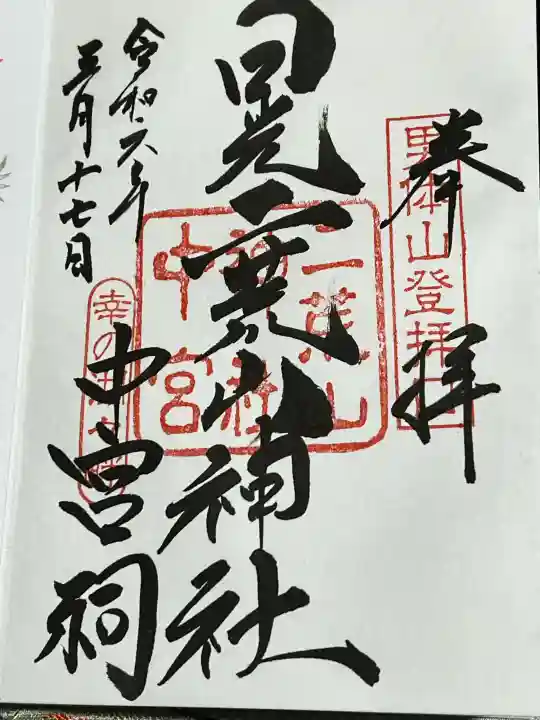 奉拝
男体山登拝口
日光二荒山神社
中宮祠
二荒山
神社
中宮
令和六年
三月十七日
幸の湖